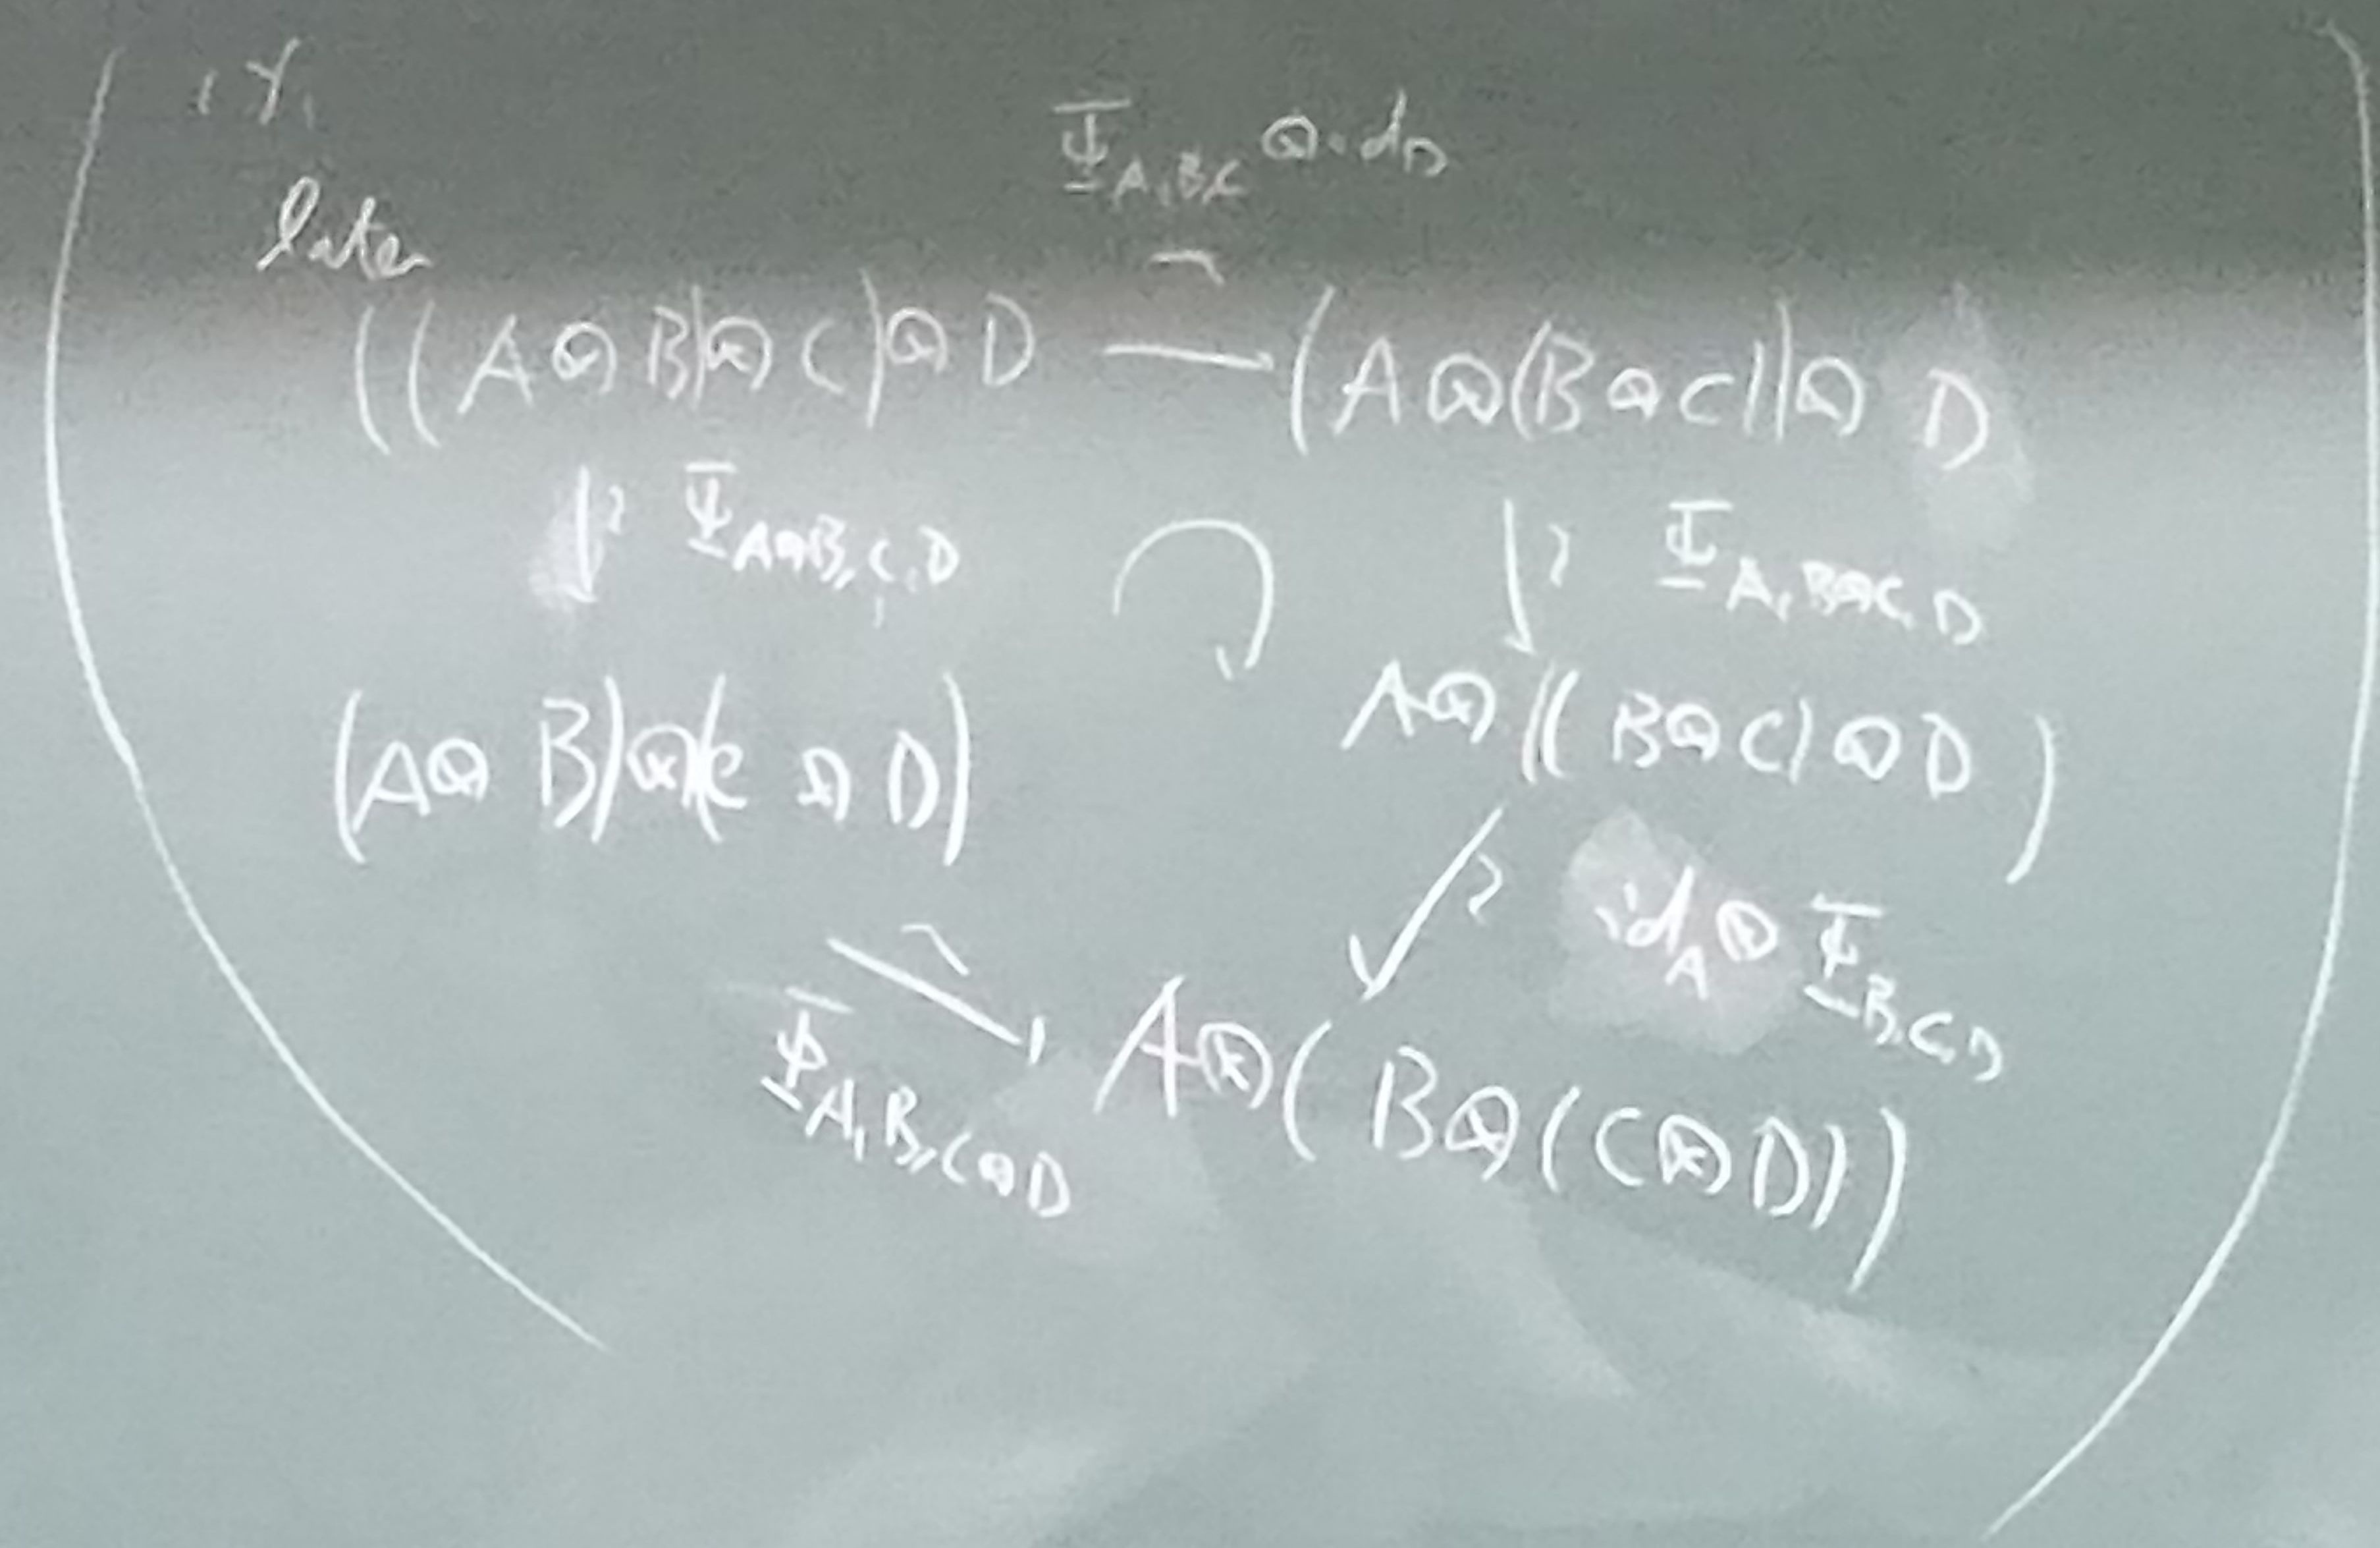 later
Φ_{A,B,C} ⊗ id_D
((A⊗B)⊗C)⊗D → (A⊗(B⊗C))⊗D
↓ ~ Φ_{A⊗B,C,D} ↓ ~ Φ_{A,B⊗C,D}
(A⊗B)⊗(C⊗D) A⊗((B⊗C)⊗D)
id_A ⊗ Φ_{B,C,D}
Φ_{A,B,C⊗D} A⊗(B⊗(C⊗D))